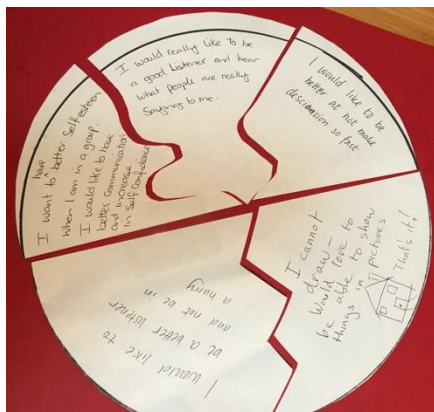 I want to have better Self esteem
When I am in a group.
I would like to have
better communication
and increase
in Self Confidence
I would really like to be
a good Listener and hear
what people are really
Saying to me.
I would like to be
better at not make
descission so fast.
I cannot
draw -
Would love to
be able to show
things in pictures
That's it!
I would like to
be a better listener
and not be in
a hurry